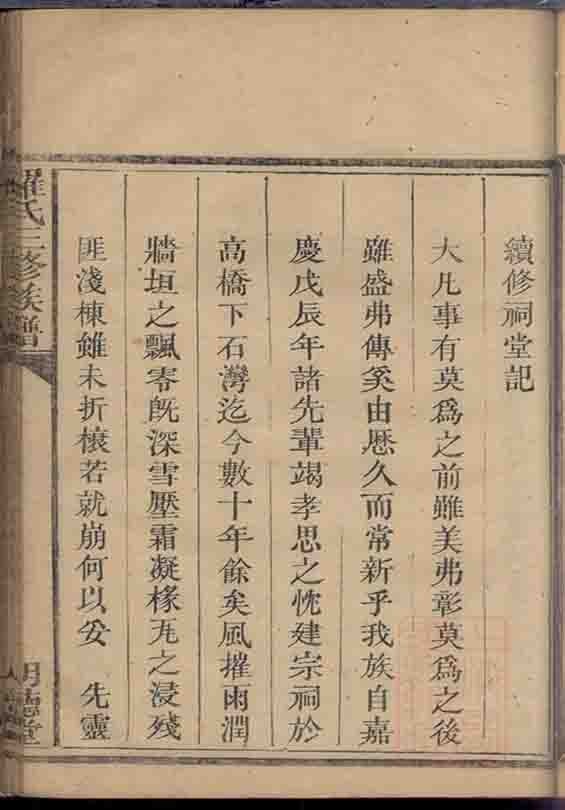 續修祠堂記
大凡事有莫爲之前雖美弗彰莫爲之後
雖盛弗傳奚由厯久而常新乎我族自嘉
慶戊辰年諸先輩竭孝思之忱建宗祠於
高橋下石灣迄今數十年餘矣風摧雨潤
牆垣之飄零旣深雪壓霜凝椽瓦之浸殘
匪淺棟雖未折榱若就崩何以安　先靈
羅氏三修族譜
明德堂